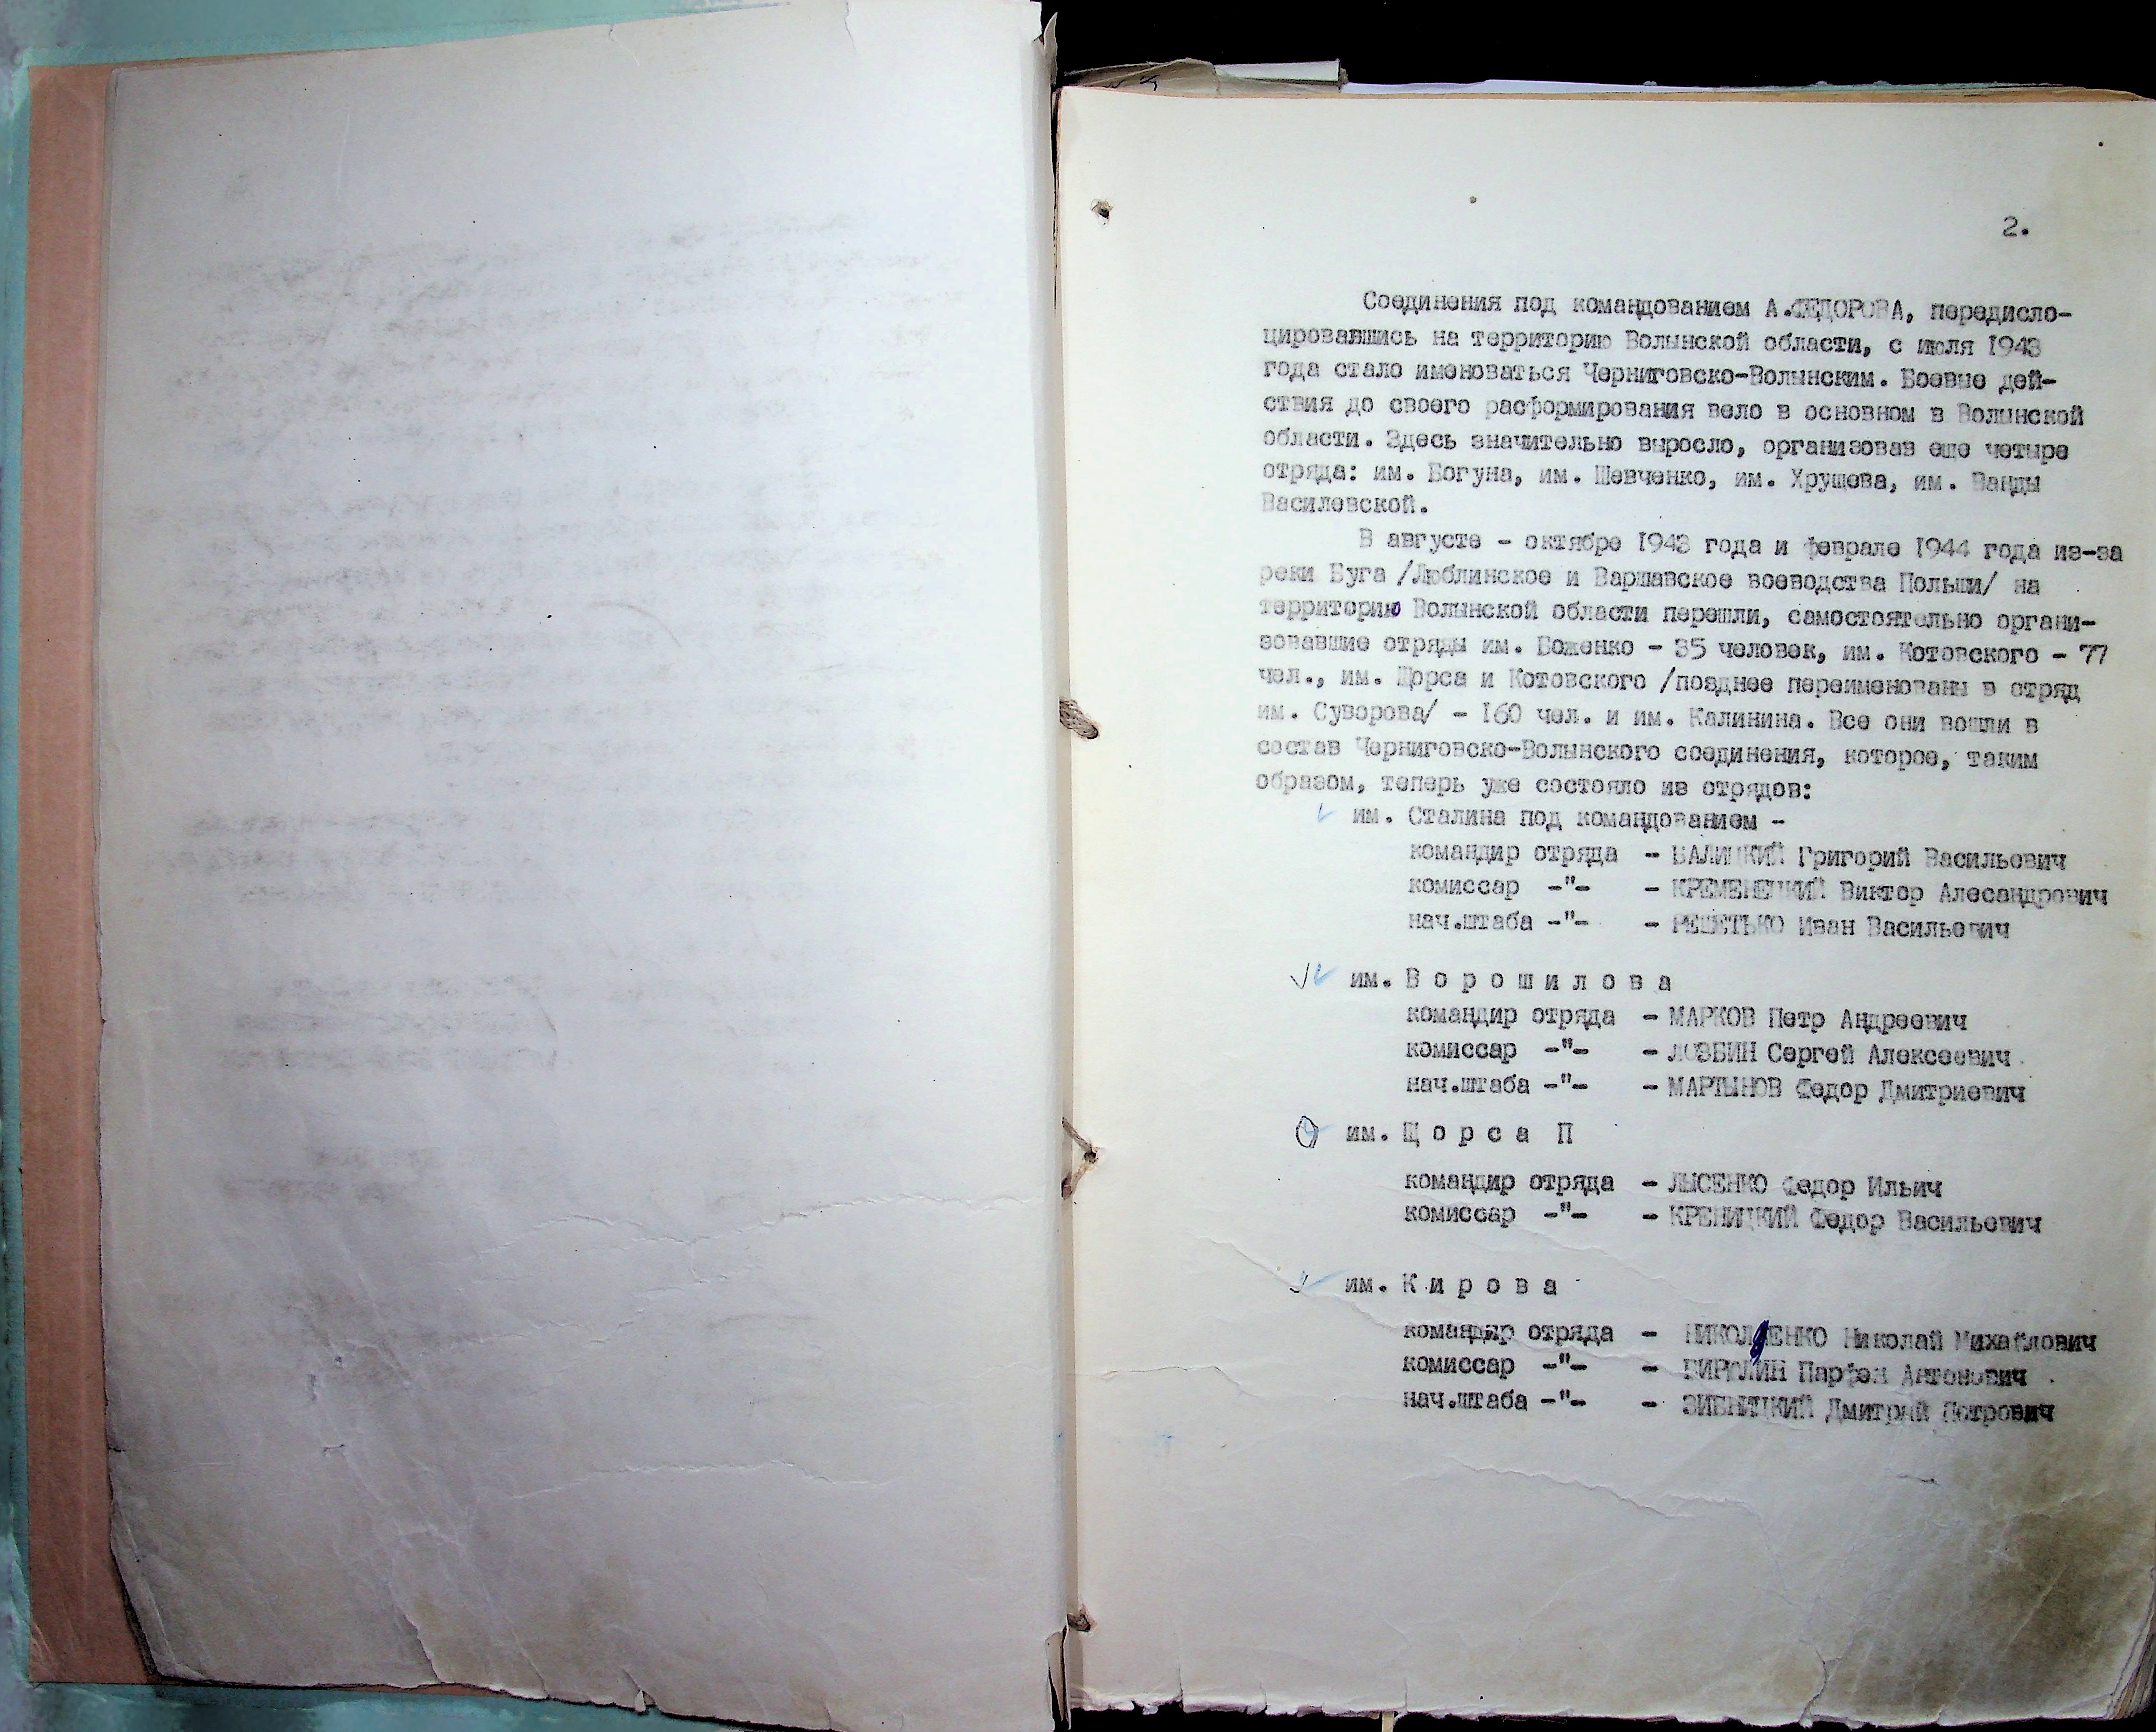 2.
Соединения под командованием А.ФЕДОРОВА, передисло-
цировавшись на территорию Волынской области, с июля 1943
года стало именоваться Черниговско-Волынским. Боевые дей-
ствия до своего расформирования вело в основном в Волынской
области. Здесь значительно выросло, организовав еще четыре
отряда: им. Богуна, им. Шевченко, им. Хрущева, им. Ванды
Василевской.
В августе - октябре 1943 года и феврале 1944 года из-за
реки Буга /Люблинское и Варшавское воеводства Польши/ на
территорию Волынской области перешли, самостоятельно органи-
зовавшие отряды им. Боженко - 35 человек, им. Котовского - 77
чел., им. Щорса и Котовского /позднее переименованы в отряд
им. Суворова/ - 160 чел. и им. Калинина. Все они вошли в
состав Черниговско-Волынского соединения, которое, таким
образом, теперь уже состояло из отрядов:
им. Сталина под командованием -
командир отряда - БАЛИЦКИЙ Григорий Васильевич
комиссар -"- - КРЕМЕНЕЦКИЙ Виктор Алесандрович
нач.штаба -"- - РЕШЕТЬКО Иван Васильевич
им. В о р о ш и л о в а
командир отряда - МАРКОВ Петр Андреевич
комиссар -"- - ЛОЗБИН Сергей Алексеевич
нач.штаба -"- - МАРТЫНОВ Федор Дмитриевич
им. Щ о р с а П
командир отряда - ЛЫСЕНКО Федор Ильич
комиссар -"- - КРЕНИЦКИЙ Федор Васильевич
им. К и р о в а
командир отряда - Николай Михайлович
комиссар -"- - Парфен Антонович
нач.штаба -"- - ЗИБНИЦКИЙ Дмитрий Петрович